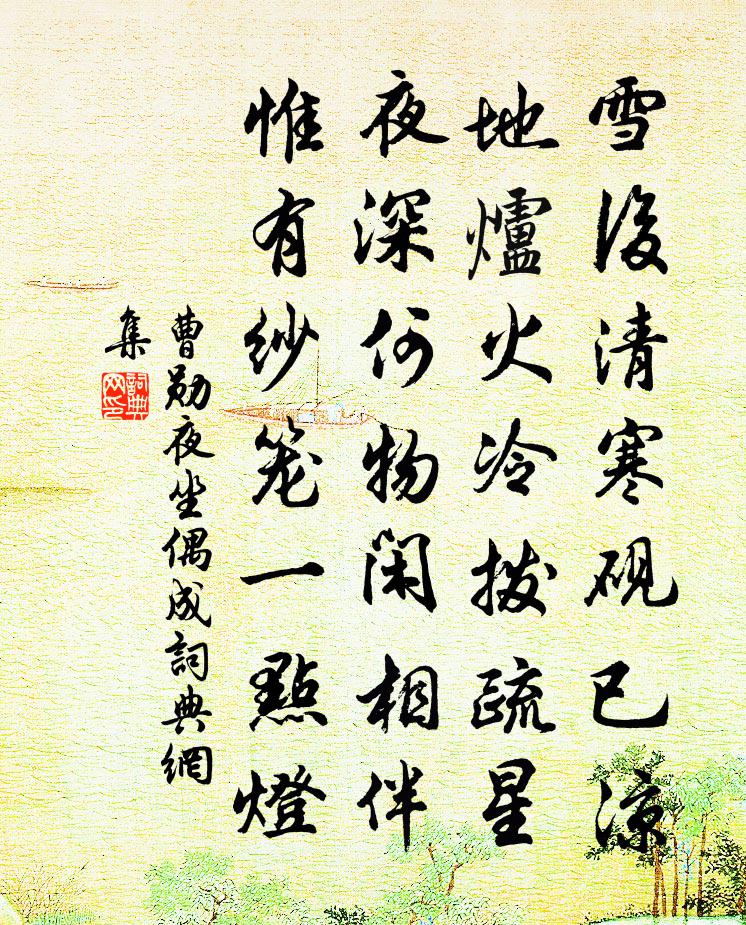 雪後清寒硯已凉
地爐火冷撥疏星
夜深何物閑相伴
惟有紗笼一點燈
曹勛夜坐偶成詞典網
集
詞典
网印